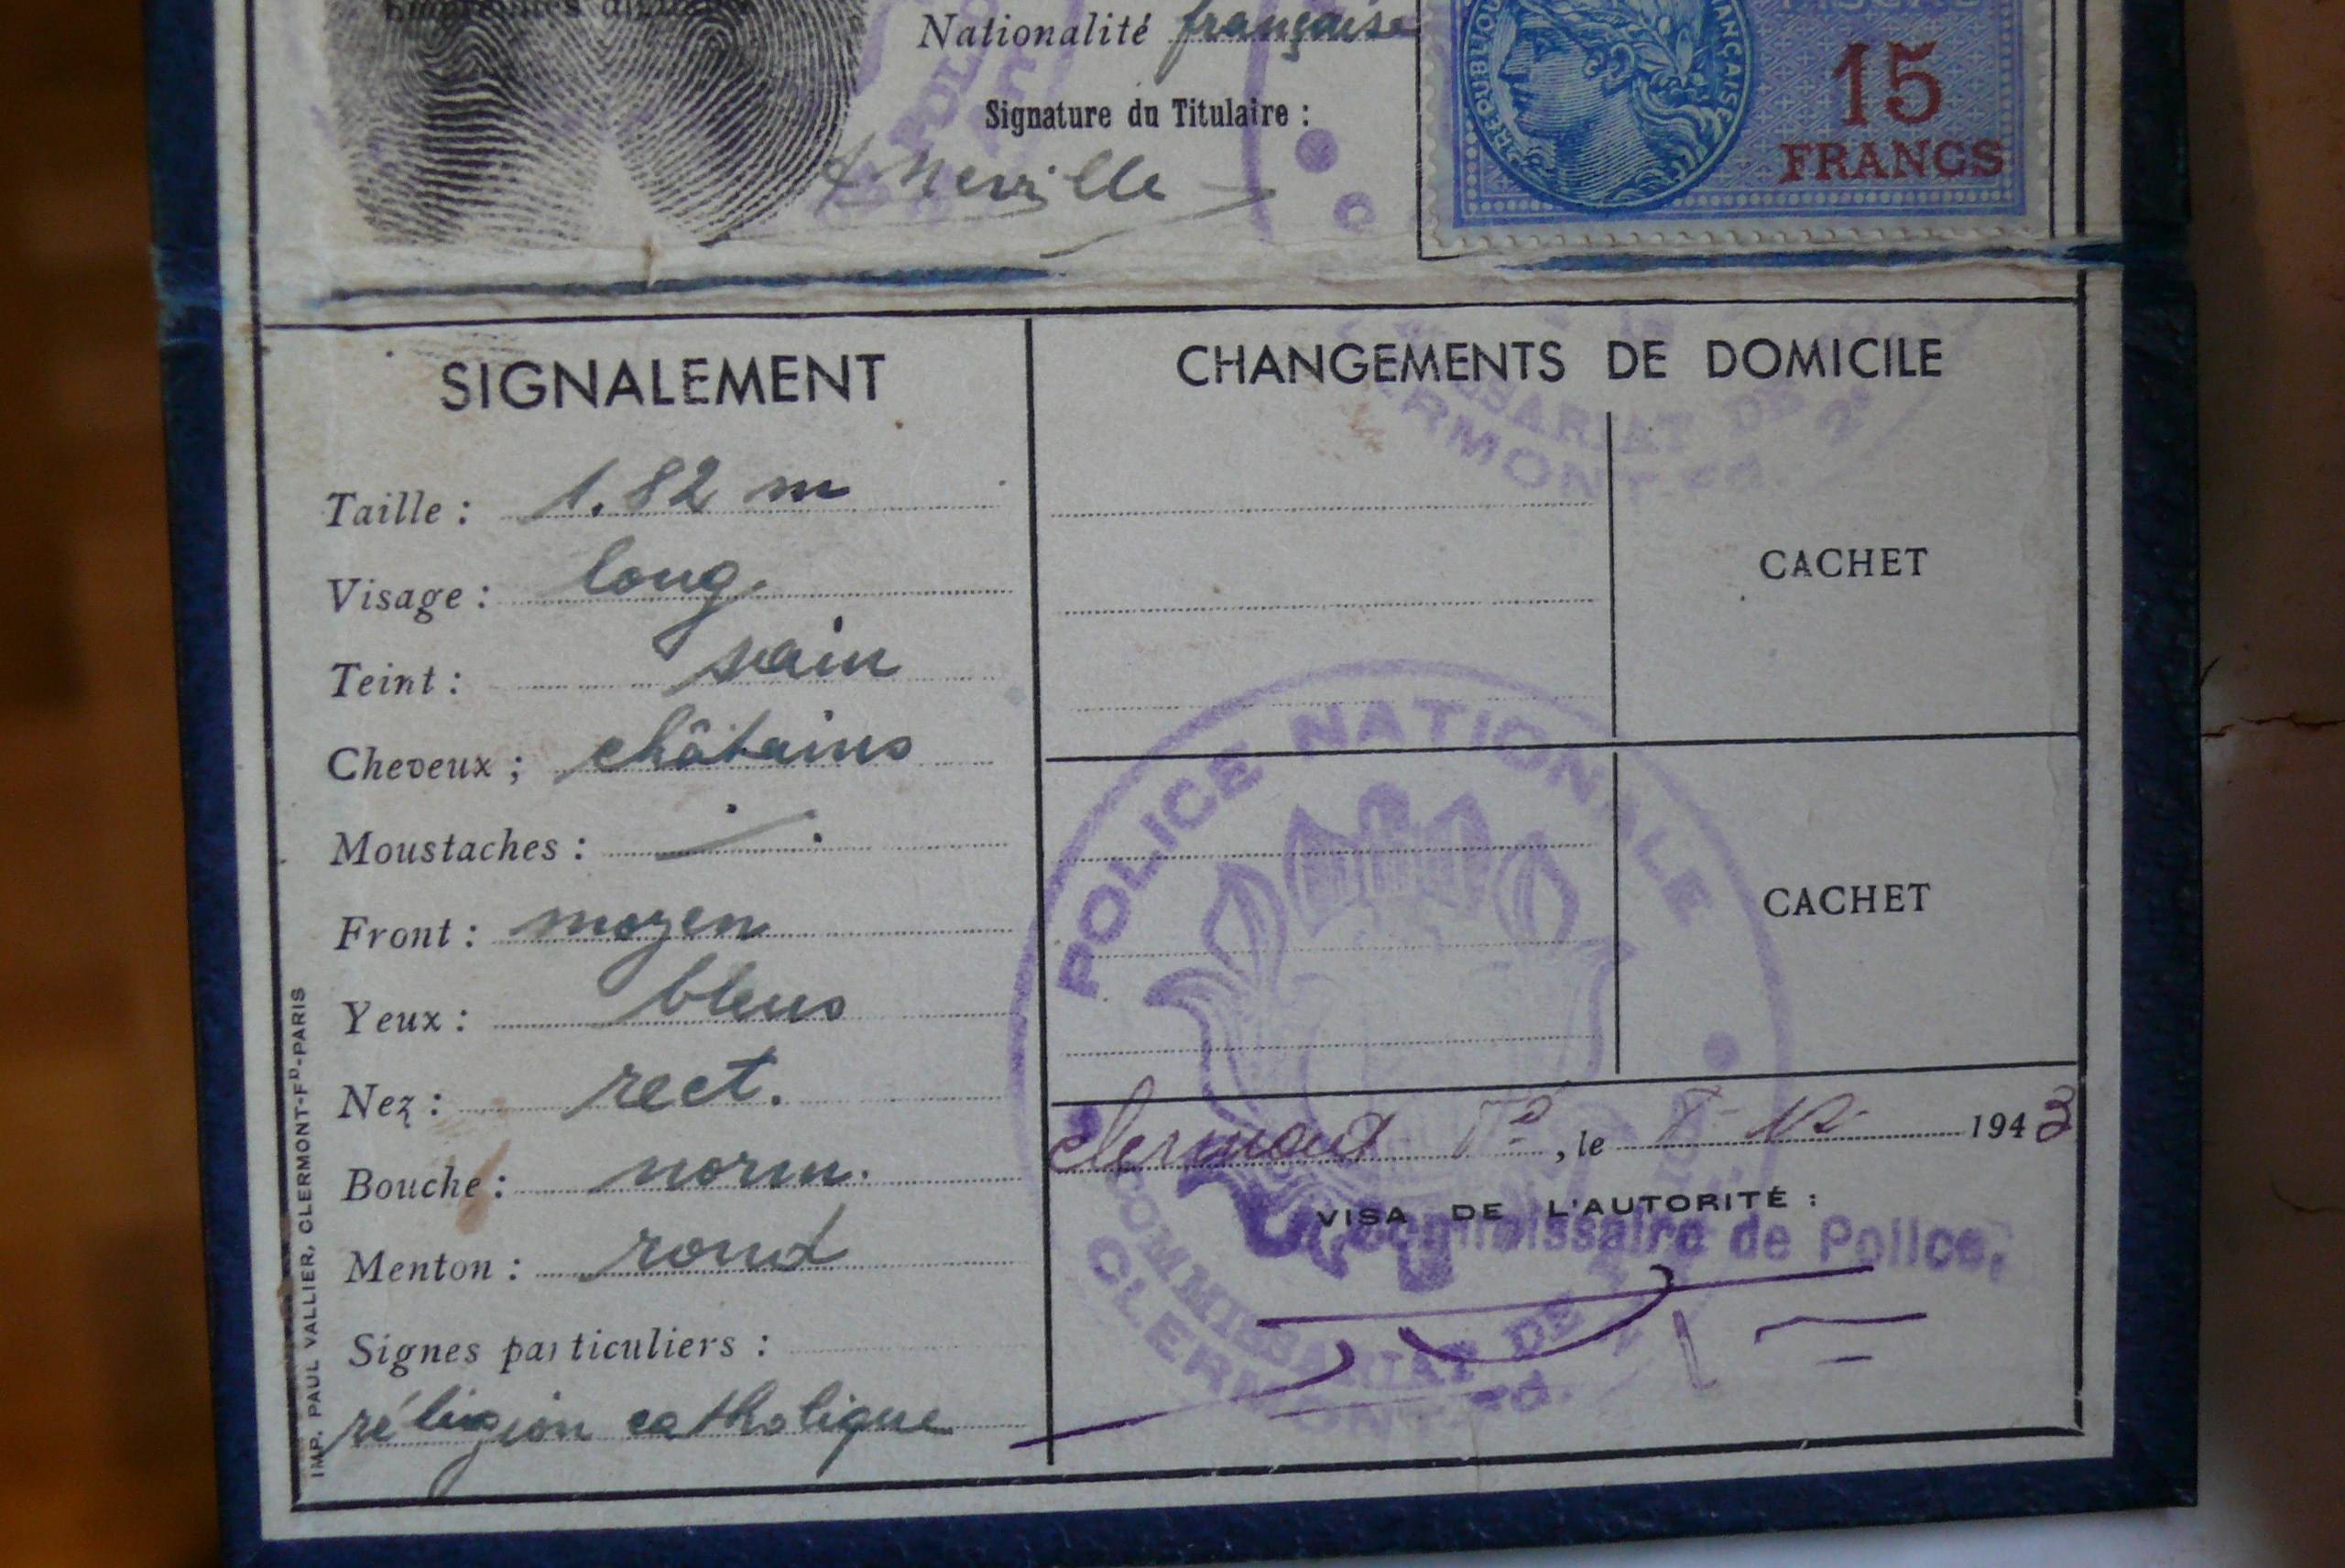 Nationalité française
Signature du Titulaire :
RÉPUBLIQUE FRANÇAISE
15
FRANCS
SIGNALEMENT
Taille : 1.82 m
Visage : long.
Teint : sain
Cheveux ; châtains
Moustaches :
Front : moyen
Yeux : bleus
Nez : rect.
Bouche : norm.
Menton : rond
Signes particuliers :
réligion catholique
IMP. PAUL VALLIER, CLERMONT-FD-PARIS
CHANGEMENTS DE DOMICILE
CACHET
CACHET
POLICE NATIONALE
COMMISSARIAT DE
CLERMONT-Fd.
Clermont Fd, le 1943
VISA DE L'AUTORITÉ :
Commissaire de Police,